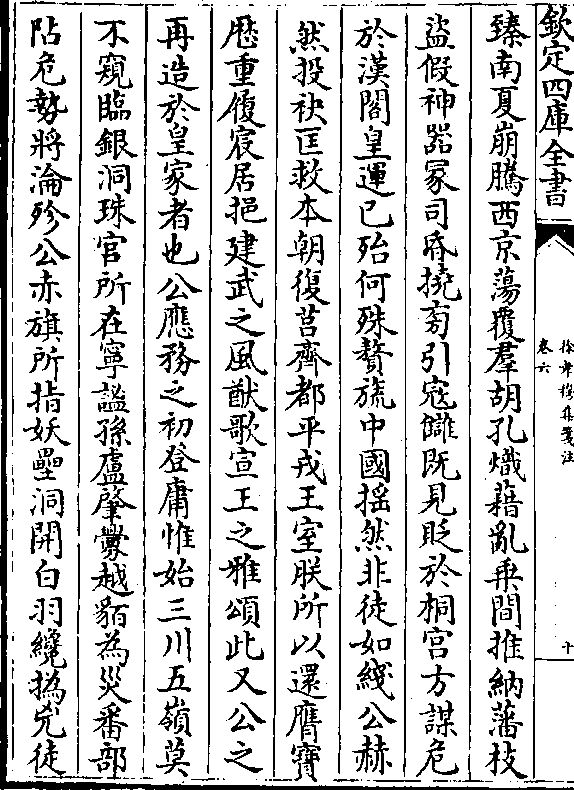 欽定四庫全書
徐孝穆集箋注
卷六
十
臻南夏崩騰西京蕩覆羣胡孔熾藉亂乗間推納藩枝
盗假神器冢司昏撓旁引寇讎既見貶於桐宫方謀危
於漢閣皇運已殆何殊贅旒中國揺然非徒如綫公赫
然投袂匡救本朝復莒齊都平戎王室朕所以還膺寶
厯重履宸居挹建武之風猷歌宣王之雅頌此又公之
再造於皇家者也公應務之初登庸惟始三川五嶺莫
不窺臨銀洞珠宫所在寧謐孫盧肇釁越貊為災番部
阽危勢將淪殄公赤旗所指妖壘洞開白羽纔撝兇徒